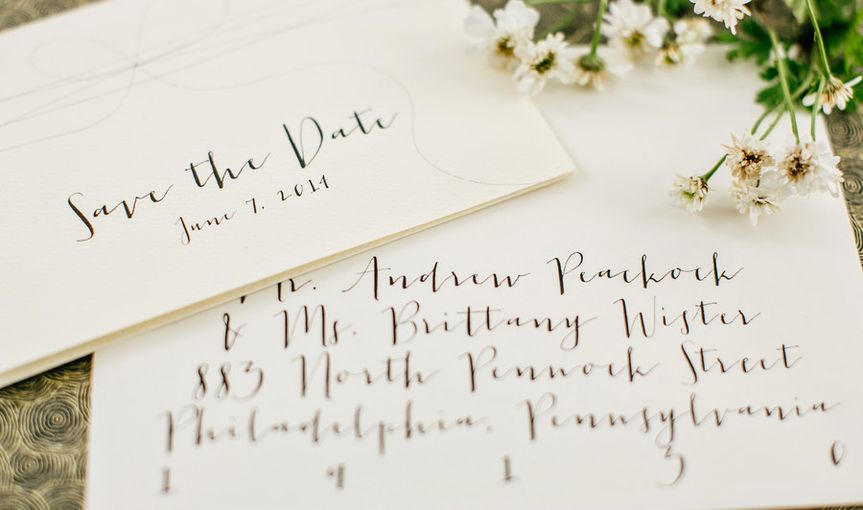 Save the Date
June 7. 2014
Mr. Andrew Peackock
& Ms. Brittany Wister
883 North Pennock Street
Philadelphia, Pennsylvania
1 9 1 3 0